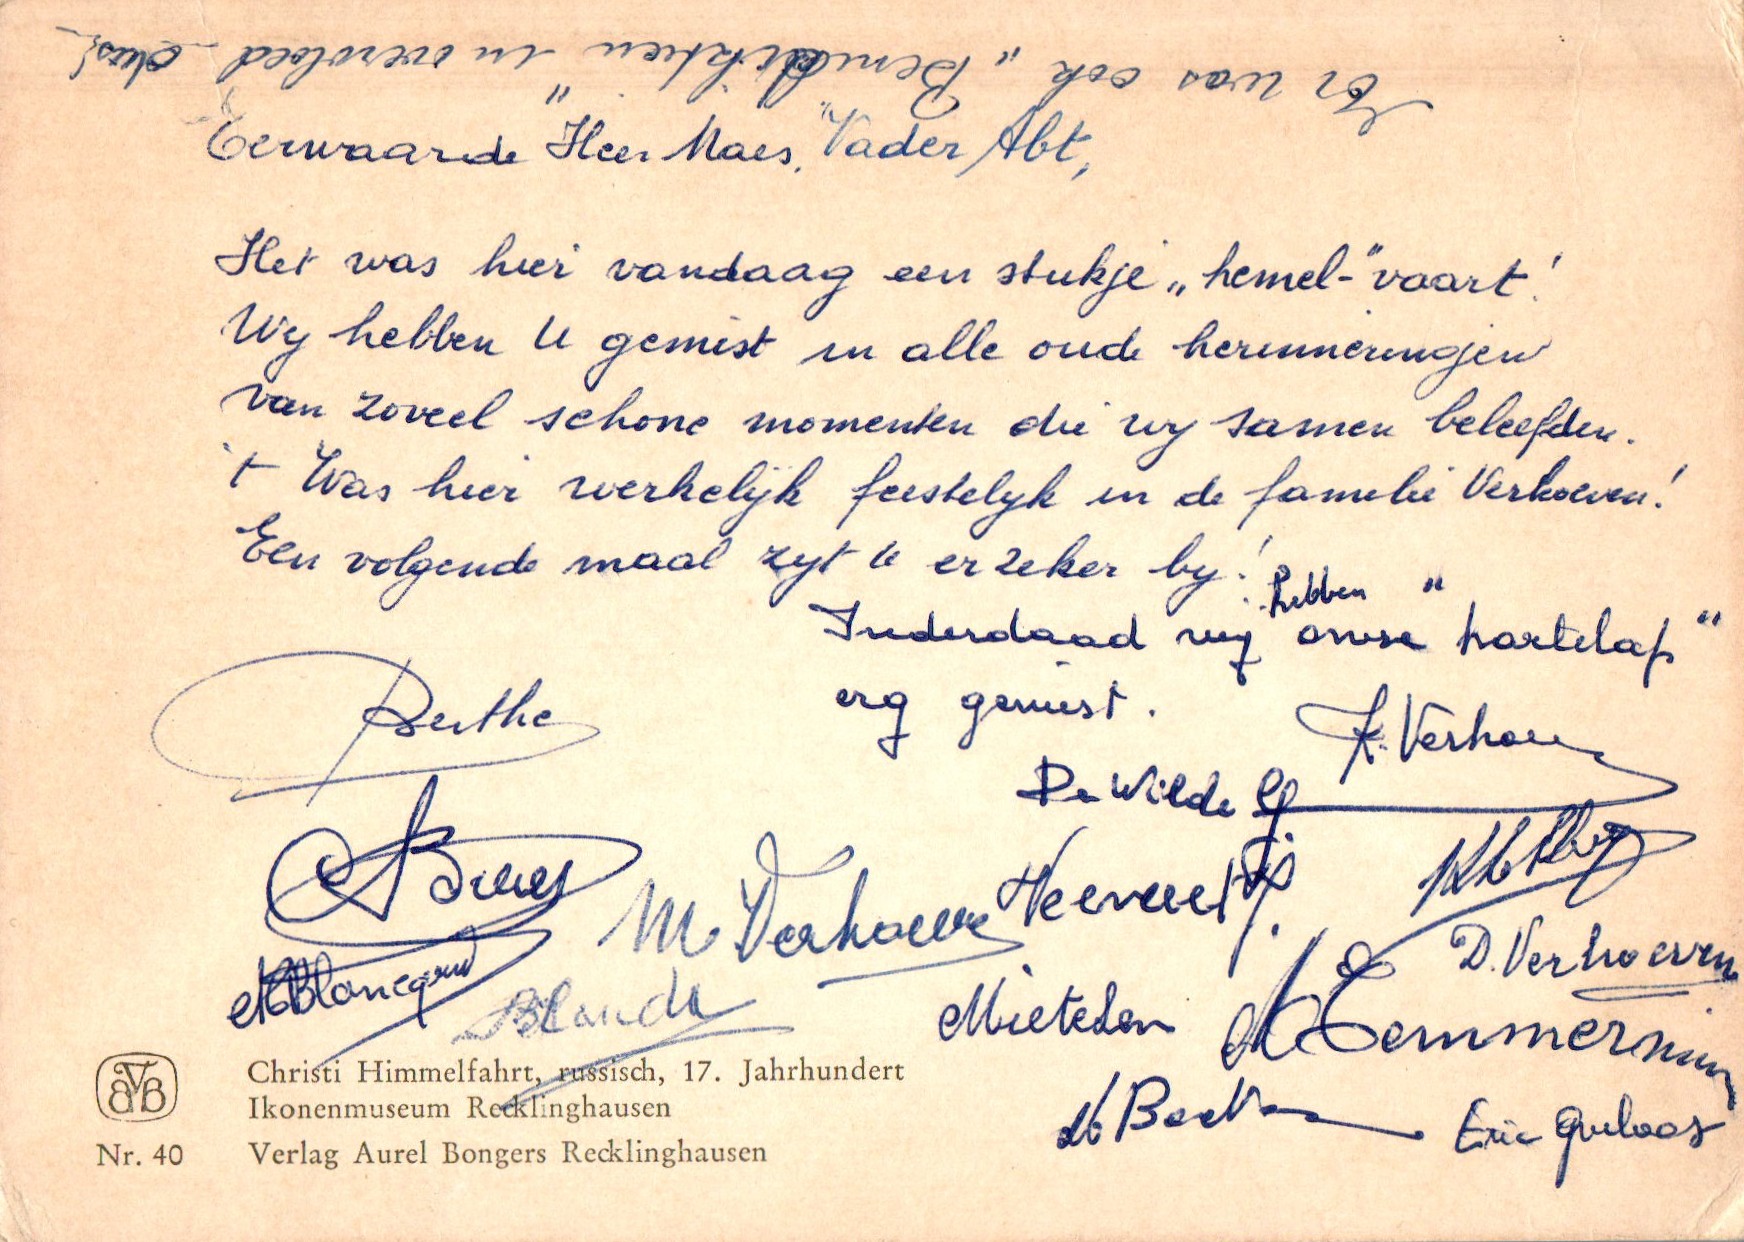 Er was ook „Benediktien" in overvloed dus!
Eerwaarde Heer Maes, "Vader Abt",
Het was hier vandaag een stukje „hemel-"vaart!
Wy hebben U gemist in alle oude herinneringen
van zoveel schone momenten die wy samen beleefden.
't Was hier werkelijk feestelyk in de familie Verhoeven!
Een volgende maal zyt U er zeker by!
Inderdaad wy hebben onze "hartelap"
erg gemist.
Berthe
K. Verhoeven
De Wilde G.
M Verhoeven
D. Verhoeven
Blanche
Mieteden
M Temmerman
Eric Gueloos
Christi Himmelfahrt, russisch, 17. Jahrhundert
Ikonenmuseum Recklinghausen
Nr. 40 Verlag Aurel Bongers Recklinghausen